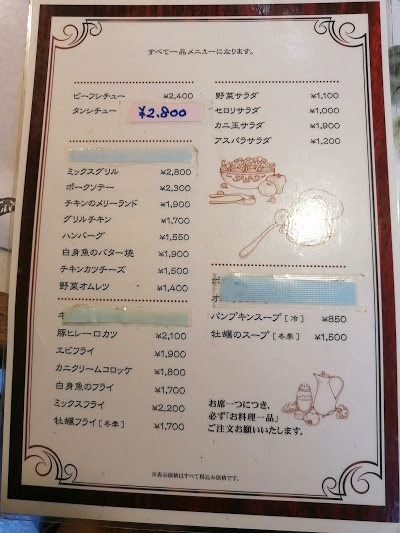 すべて一品メニューになります。
ビーフシチュー ¥2,400
タンシチュー ¥2,800
ミックスグリル ¥2,800
ポークソテー ¥2,300
チキンのメリーランド ¥1,900
グリルチキン ¥1,700
ハンバーグ ¥1,550
白身魚のバター焼 ¥1,900
チキンカツチーズ ¥1,500
野菜オムレツ ¥1,400
豚ヒレ一口カツ ¥2,100
エビフライ ¥1,900
カニクリームコロッケ ¥1,800
白身魚のフライ ¥1,700
ミックスフライ ¥2,200
牡蠣フライ[冬季] ¥1,700
野菜サラダ ¥1,100
セロリサラダ ¥1,000
カニ玉サラダ ¥1,900
アスパラサラダ ¥1,200
パンプキンスープ[冷] ¥850
牡蠣のスープ[冬季] ¥1,500
お席一つにつき、
必ず「お料理一品」
ご注文お願いいたします。
※表示価格はすべて税込み価格です。